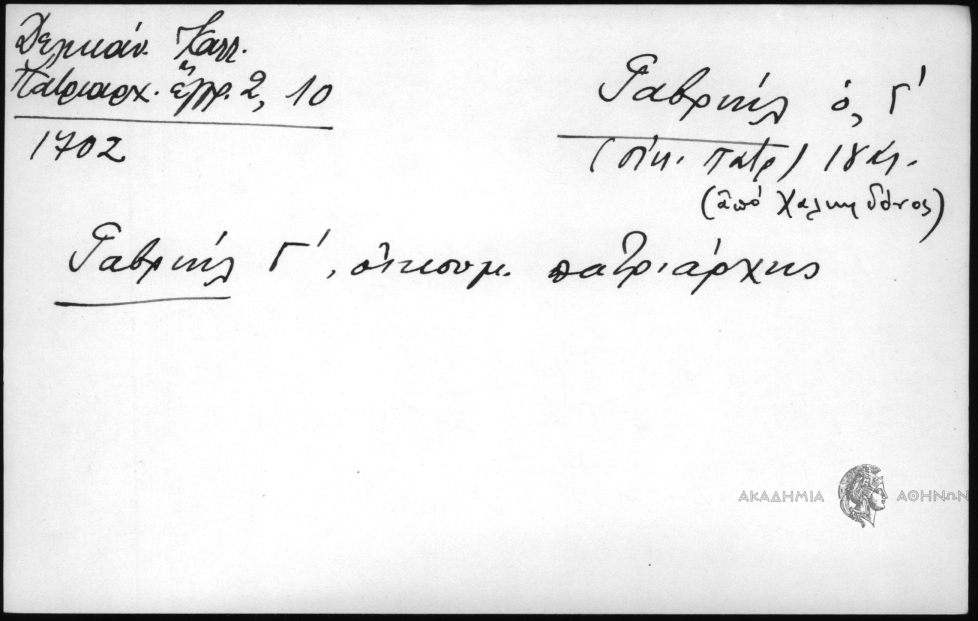 Δελικάν. Καλλ.
Πατριαρχ. ἔγγρ. 2, 10
1702
Γαβριήλ ὁ, Γ΄
(οἰκ. πατρ) 18 αἰ.
(ἀπό Χαλκηδόνος)
Γαβριήλ Γ΄, οἰκουμ. πατριάρχης
ΑΚΑΔΗΜΙΑ ΑΘΗΝΩΝ